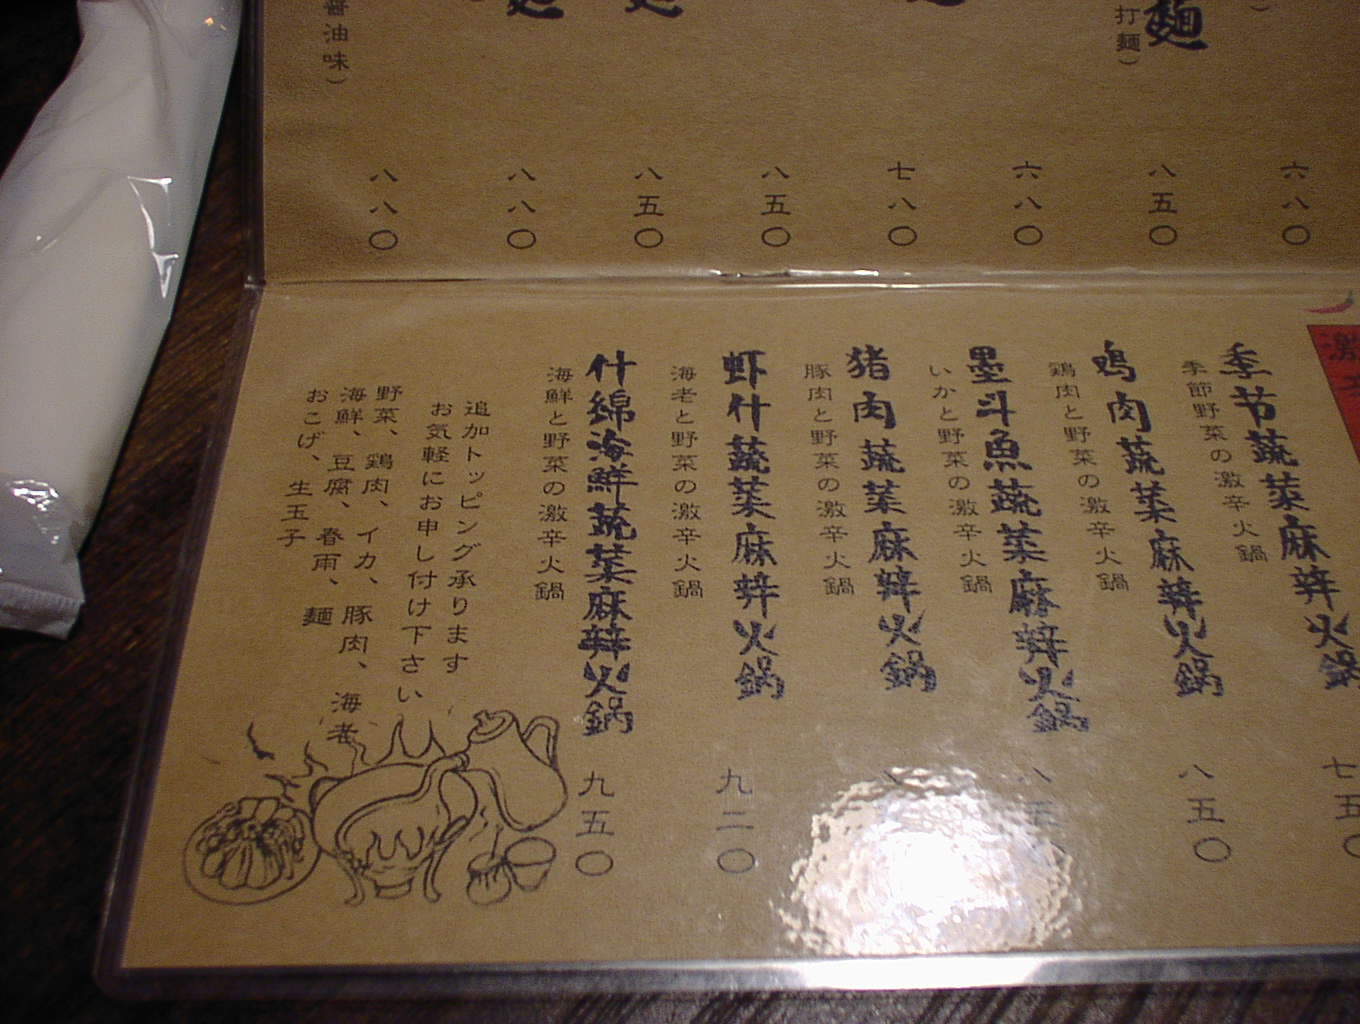 麺
打麺）
麺
麺
醤油味）
六八〇
八五〇
六八〇
七八〇
八五〇
八五〇
八八〇
八八〇
激辛
季节蔬菜麻辣火锅
季節野菜の激辛火鍋
七五〇
鸡肉蔬菜麻辣火锅
鶏肉と野菜の激辛火鍋
八五〇
墨斗魚蔬菜麻辣火锅
いかと野菜の激辛火鍋
八五〇
猪肉蔬菜麻辣火锅
豚肉と野菜の激辛火鍋
虾什蔬菜麻辣火锅
海老と野菜の激辛火鍋
九二〇
什綿海鮮蔬菜麻辣火锅
海鮮と野菜の激辛火鍋
九五〇
追加トッピング承ります
お気軽にお申し付け下さい
野菜、鶏肉、イカ、豚肉、海老
海鮮、豆腐、春雨、麺
おこげ、生玉子